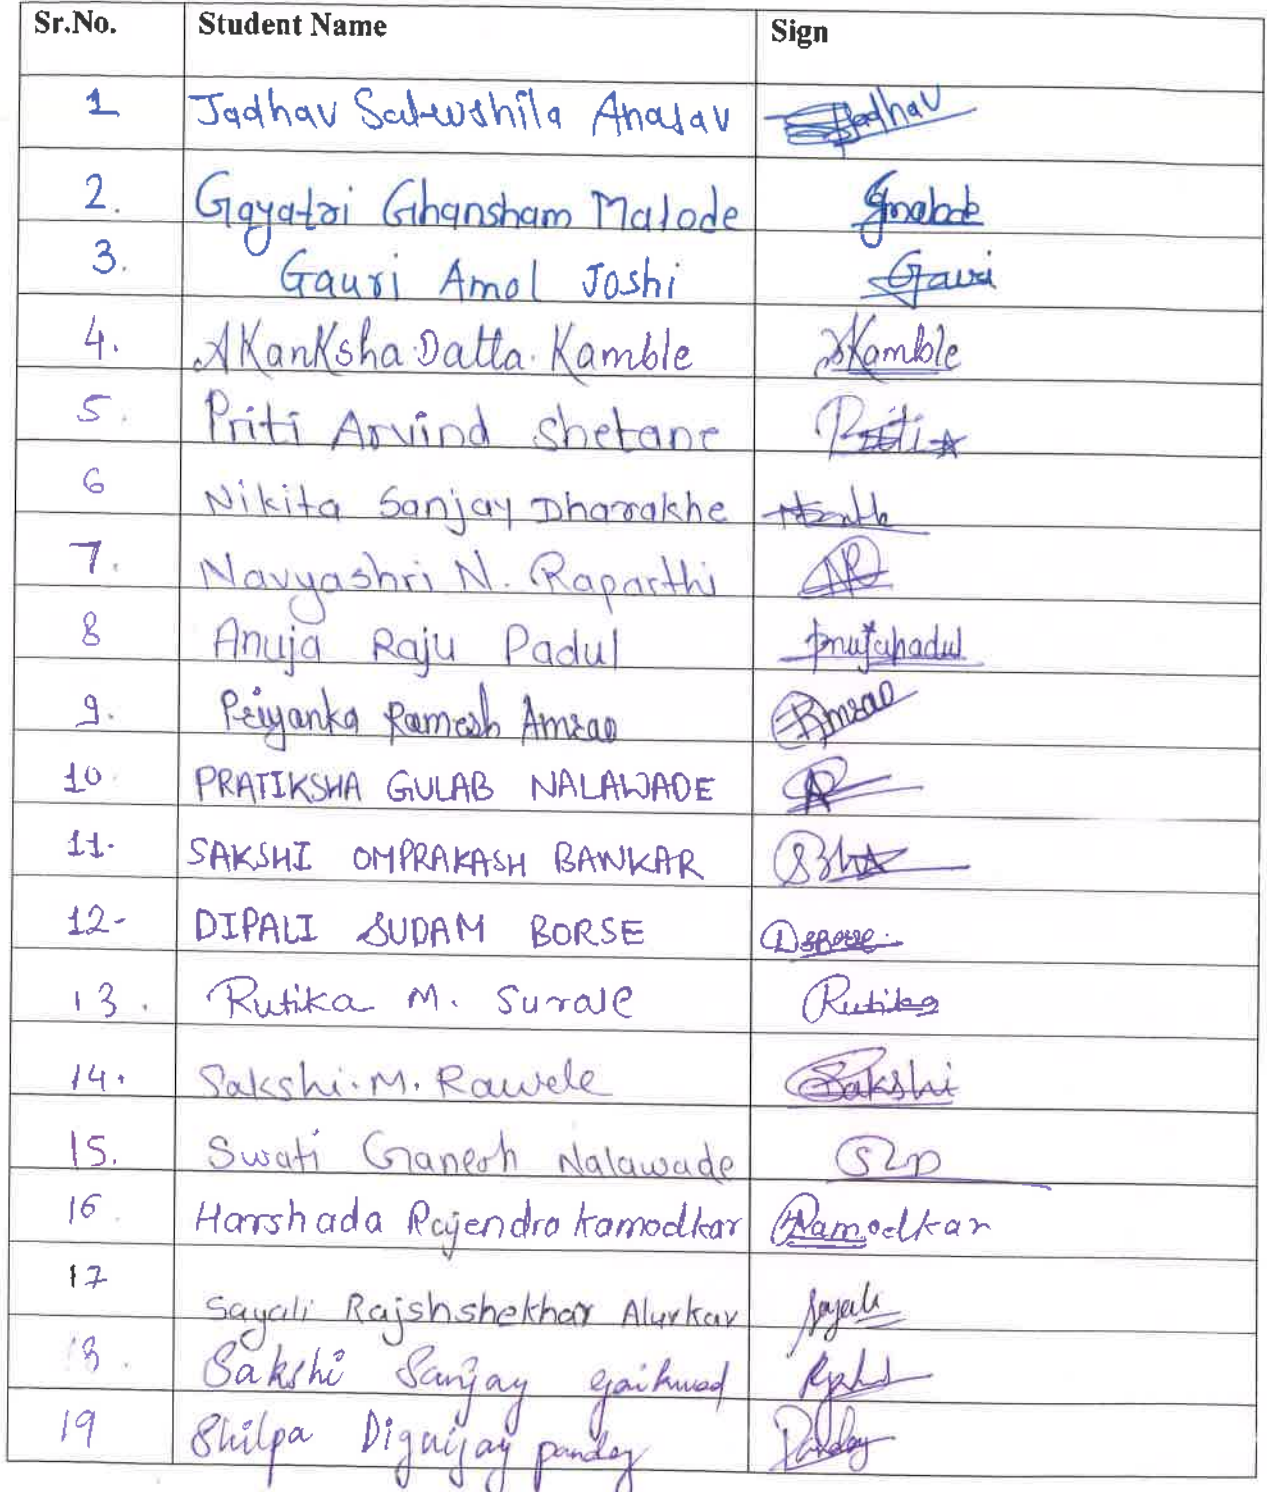 Sr.No. Student Name Sign
1 Jadhav Anajav Jadhav
2. Gayatri Ghansham Malode
3. Gauri Amol Joshi Gauri
4. AKanKsha Datta. Kamble AKamble
5. Priti Arvind Shetane Priti
6 Nikita Sanjay Dharakhe
7. Navyashri N. Raparthi NR
8 Anuja Raju Padul Anujapadul
9. Priyanka Ramesh Amrao RAmrao
10 PRATIKSHA GULAB NALAWADE
11. SAKSHI OMPRAKASH BANKAR
12- DIPALI SUDAM BORSE DSBorse
13. Rutika M. Surale Rutika
14. Sakshi.M. Rawele Sakshi
15. Swati Ganesh Nalawade
16. Harshada Rajendra Kamodkar Kamodkar
17 Sayali Rajshshekhar Alurkar Sayali
18. Sakshi Sanjay gaikwad
19 Shilpa Digvijay pandey Pandey